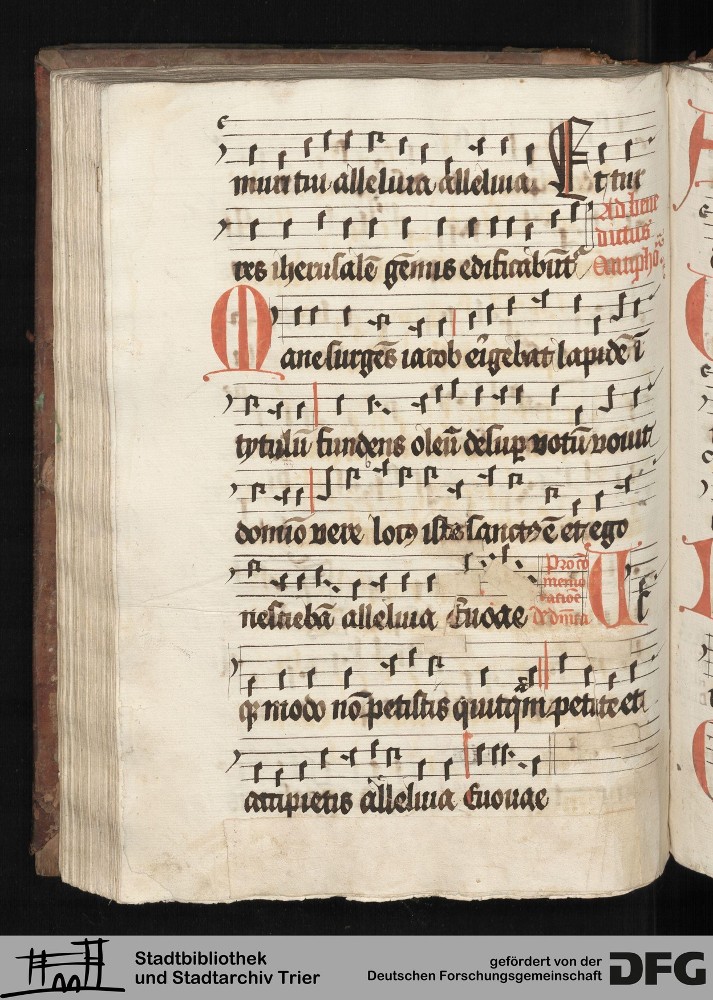 muri tui alleluia alleluia Et tur
res iherusalē gēmis edificabūt' Ad bene
dictus
Antiphoᵃ.
Mane surgēs iacob eigebat lapidē ī
tytulū fundens oleū desuꝑ votū vouit
domīo vere locꝰ iste sanctꝰ ē et ego
nesciebā alleluia Euouae Pro cō
memo
ratiōe
de dn̄ica
Us
qꝫ modo nō petistis quitqm̄ petite et
accipietis alleluia Euouae
Stadtbibliothek
und Stadtarchiv Trier
gefördert von der
Deutschen Forschungsgemeinschaft
DFG